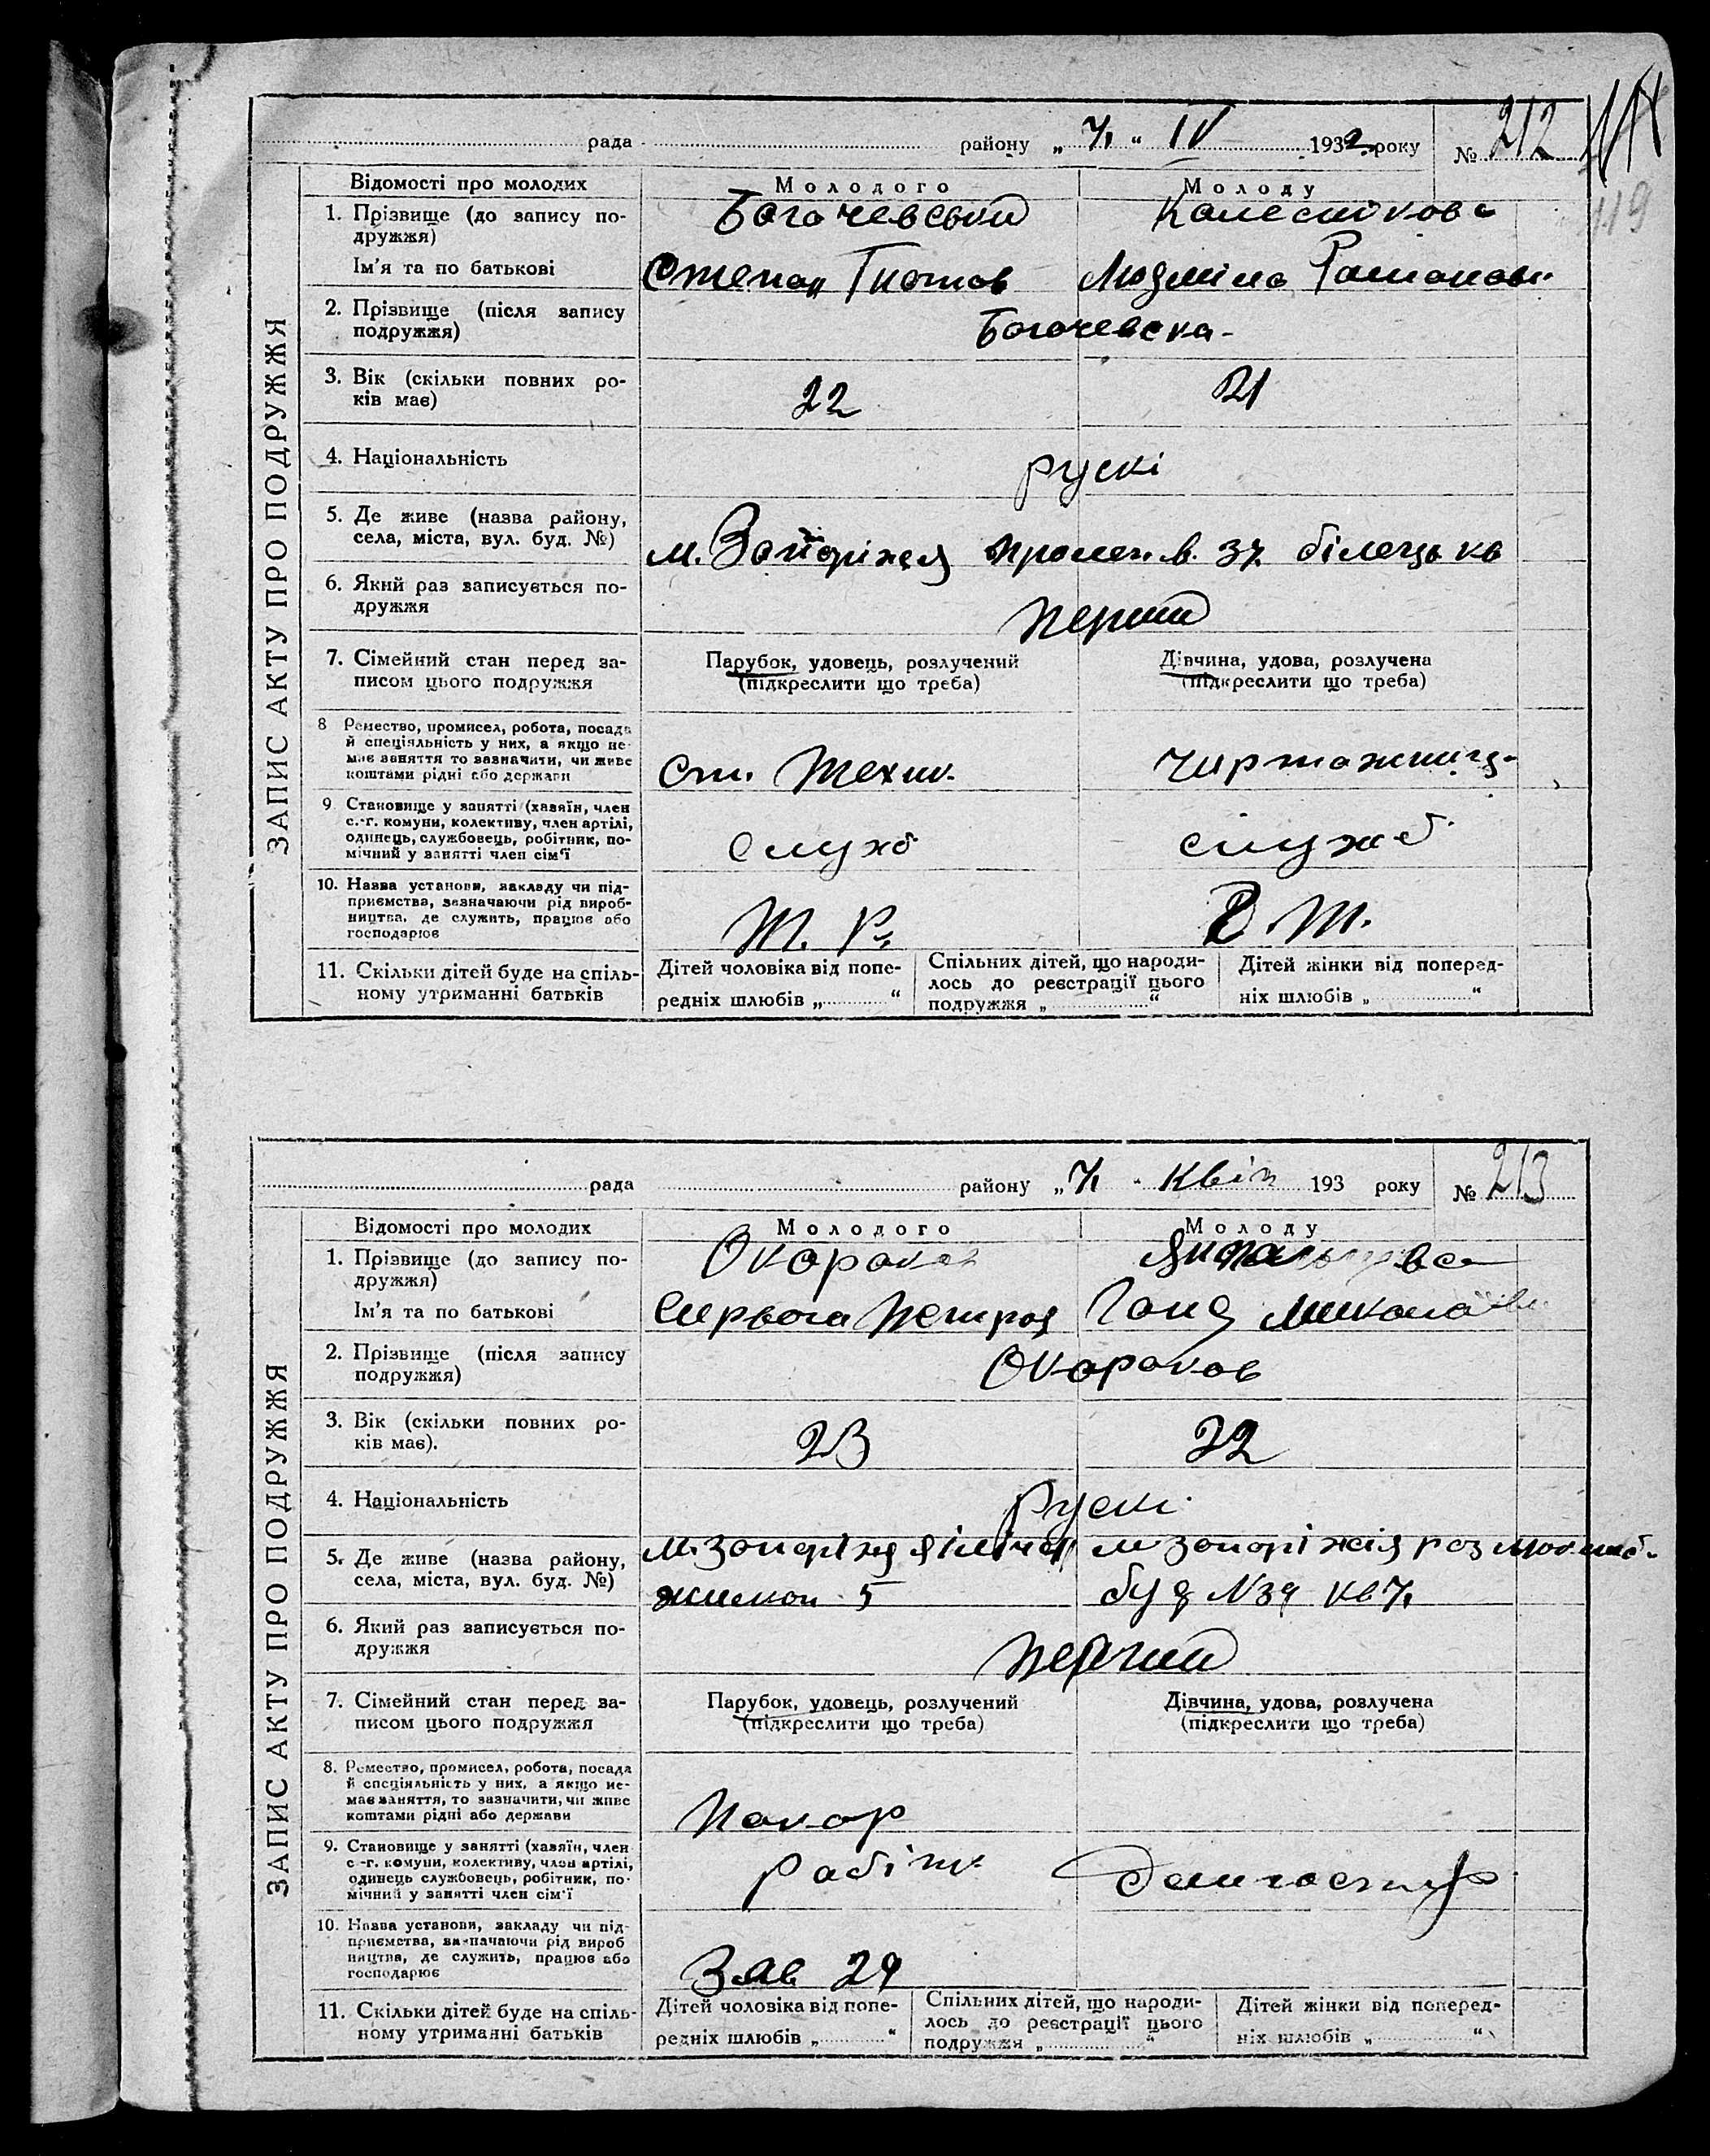 рада району „ 7 “ IV 1932 року № 212
119
ЗАПИС АКТУ ПРО ПОДРУЖЖЯ
Відомості про молодих Молодого Молоду
1. Прізвище (до запису по-
дружжя) Богачевський Колеснікова
Ім'я та по батькові Степан Гнатов Людміла Романовн.
2. Прізвище (після запису
подружжя) Богачевска
3. Вік (скільки повних ро-
ків має) 22 21
4. Національність рускі
5. Де живе (назва району,
села, міста, вул. буд. №) м. Запоріжжя 37
6. Який раз записується по-
дружжя Перший
7. Сімейний стан перед за-
писом цього подружжя
Парубок, удовець, розлучений
(підкреслити що треба)
Дівчина, удова, розлучена
(підкреслити що треба)
8 Ремество, промисел, робота, посада
й спеціяльність у них, а якщо не-
має заняття то зазначити, чи живе
коштами рідні або держави
ст. Техник.
9. Становище у занятті (хазяїн, член
с.-г. комуни, колективу, член артілі,
одинець, службовець, робітник, по-
мічний у занятті член сім'ї
служб служб
10. Назва установи, закладу чи під-
приємства, зазначаючи рід вироб-
ництва, де служить, працює або
господарює
Т. Р.
11. Скільки дітей буде на спіль-
ному утриманні батьків
Дітей чоловіка від попе-
редніх шлюбів „ “
Спільних дітей, що народи-
лось до реєстрації цього
подружжя „ “
Дітей жінки від поперед-
ніх шлюбів „ “
рада району „ 7 “ Квіт 193 року № 213
ЗАПИС АКТУ ПРО ПОДРУЖЖЯ
Відомості про молодих Молодого Молоду
1. Прізвище (до запису по-
дружжя) Окороков
Ім'я та по батькові Петров Миколаївн.
2. Прізвище (після запису
подружжя) Окороков
3. Вік (скільки повних ро-
ків має). 23 22
4. Національність Рускі
5. Де живе (назва району, м. Запоріжжя м Запоріжжя
села, міста, вул. буд. №) 5 буд № 39 кв 7
6. Який раз записується по-
дружжя Перший
7. Сімейний стан перед за-
писом цього подружжя
Парубок, удовець, розлучений
(підкреслити що треба)
Дівчина, удова, розлучена
(підкреслити що треба)
8. Ремество, промисел, робота, посада
й спеціяльність у них, а якщо не-
має заняття, то зазначити, чи живе
коштами рідні або держави
9. Становище у занятті (хазяїн, член
с.-г. комуни, колективу, член артілі,
одинець службовець, робітник, по-
мічний у занятті член сім'ї
робітн. Домгоспод
10. Назва установи, закладу чи під-
приємства, зазначаючи рід вироб
ництва, де служить, працює або
господарює
Зав 29
11. Скільки дітей буде на спіль-
ному утриманні батьків
Дітей чоловіка від попе-
редніх шлюбів „ “
Спільних дітей, що народи-
лось до реєстрації цього
подружжя „ “
Дітей жінки від поперед-
ніх шлюбів „ “